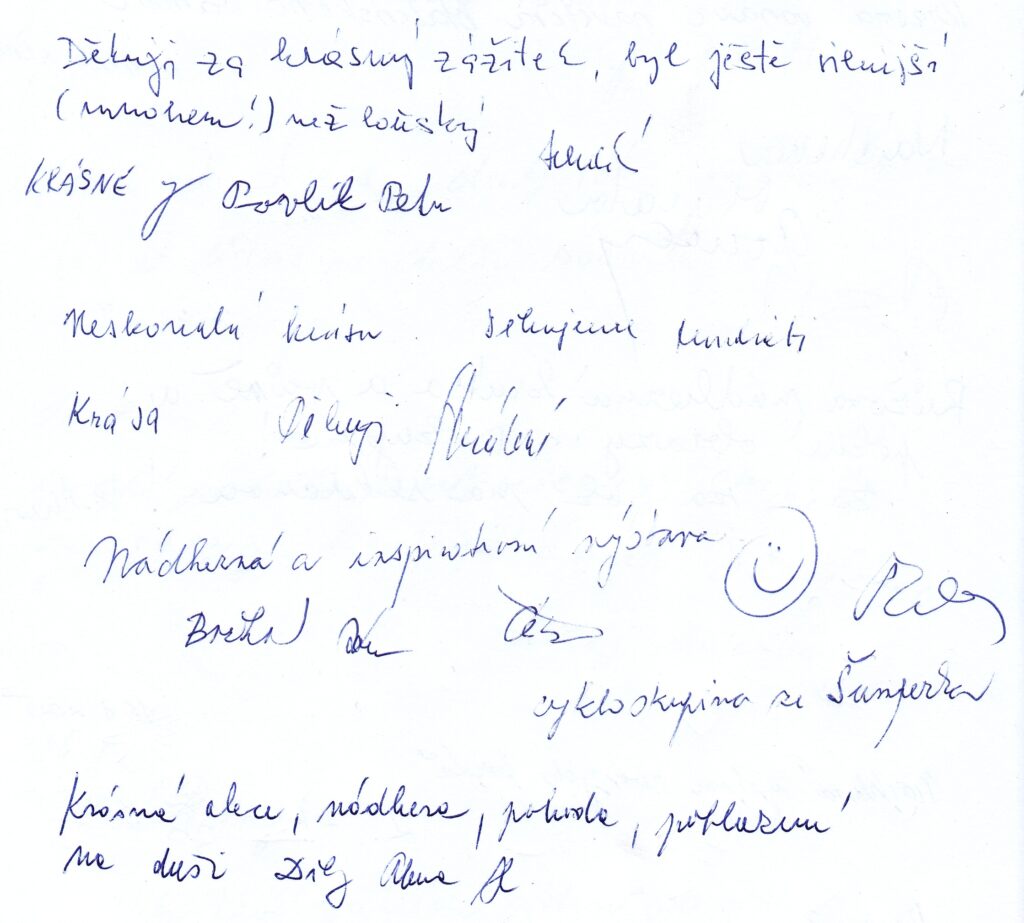 Děkuji za krásný zážitek, byl ještě silnější
(mnohem!) než loňský
KRÁSNÉ Pavlík Petr
Neskonalá krása. Děkujeme
Krása Děkuji
Nádherná a inspirativní výstava
cykloskupina ze Šumperka
Krásná akce, nádhera, pohoda, pohlazení
na duši Díky Alena